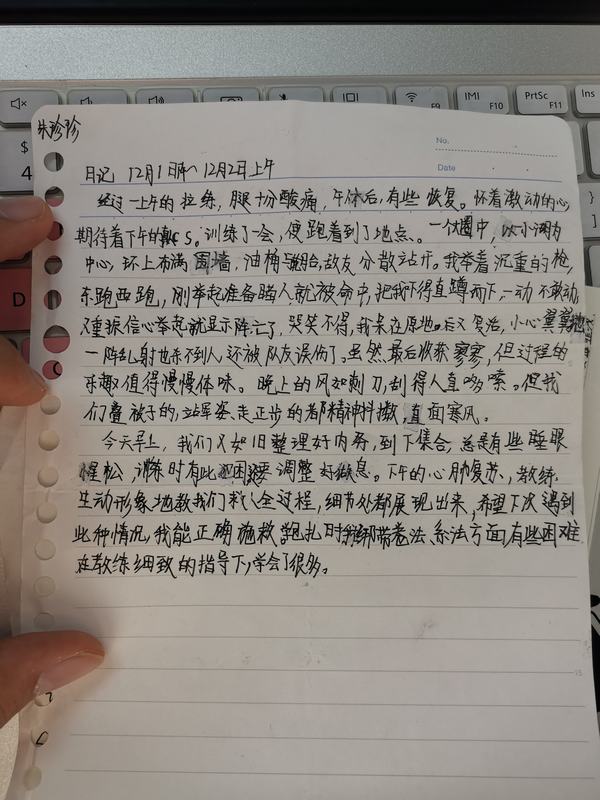 F9
F10
PrtSc
F11
Ins
$
4
D
朱珍珍
No.
Date
日记 12月1日晴~12月2日上午
经过一上午的拉练,腿十分酸痛,午休后,有些恢复。怀着激动的心,
期待着下午的CS。训练了一会,便跑着到了地点。一个大圈中,以小湖为
中心,环上布满围墙,油桶与胎,敌友分散站开。我举着沉重的枪,
东跑西跑,刚举起准备瞄人就被命中,把我吓得直蹲而下,一动不敢动,
又重振信心举起就显示阵亡了,哭笑不得,我呆在原地。后又复活,小心翼翼地
一阵乱射也杀不到人还被队友误伤了。虽然最后收获寥寥,但过程的
乐趣值得慢慢体味。晚上的风如剃刀,刮得人直哆嗦。但我
们叠被子的,站军姿、走正步的都精神抖擞,直面寒风。
今天早上,我们又如旧整理好内务,到下集合,总是有些睡眼
惺松,训练时有些困要调整好休息。下午的心肺复苏,教练
生动形象地教我们救人全过程,细节处都展现出来,希望下次遇到
此种情况,我能正确施救。包扎时绷带卷法、系法方面,有些困难
在教练细致的指导下,学会了很多。
15